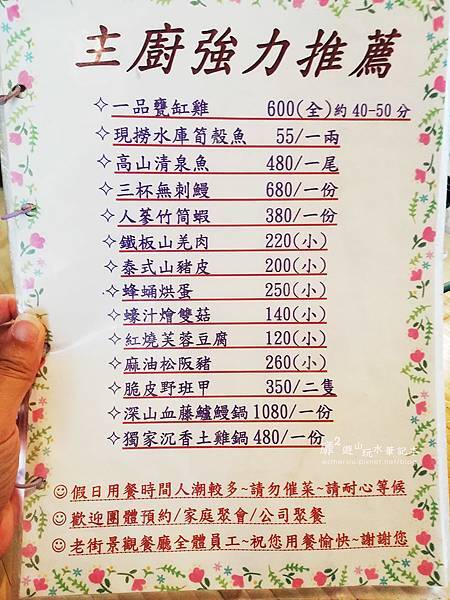 主廚強力推薦
✧一品甕缸雞 600(全)約40-50分
✧現撈水庫筍殼魚 55/一兩
✧高山清泉魚 480/一尾
✧三杯無刺鰻 680/一份
✧人蔘竹筒蝦 380/一份
✧鐵板山羌肉 220(小)
✧泰式山豬皮 200(小)
✧蜂蛹烘蛋 250(小)
✧蠔汁燴雙菇 140(小)
✧紅燒芙蓉豆腐 120(小)
✧麻油松阪豬 260(小)
✧脆皮野班甲 350/二隻
✧深山血藤鱸鰻鍋 1080/一份
✧獨家沉香土雞鍋 480/一份
☺假日用餐時間人潮較多~請勿催菜~請耐心等候
☺歡迎團體預約/家庭聚會/公司聚餐
☺老街景觀餐廳全體員工~祝您用餐愉快~謝謝您